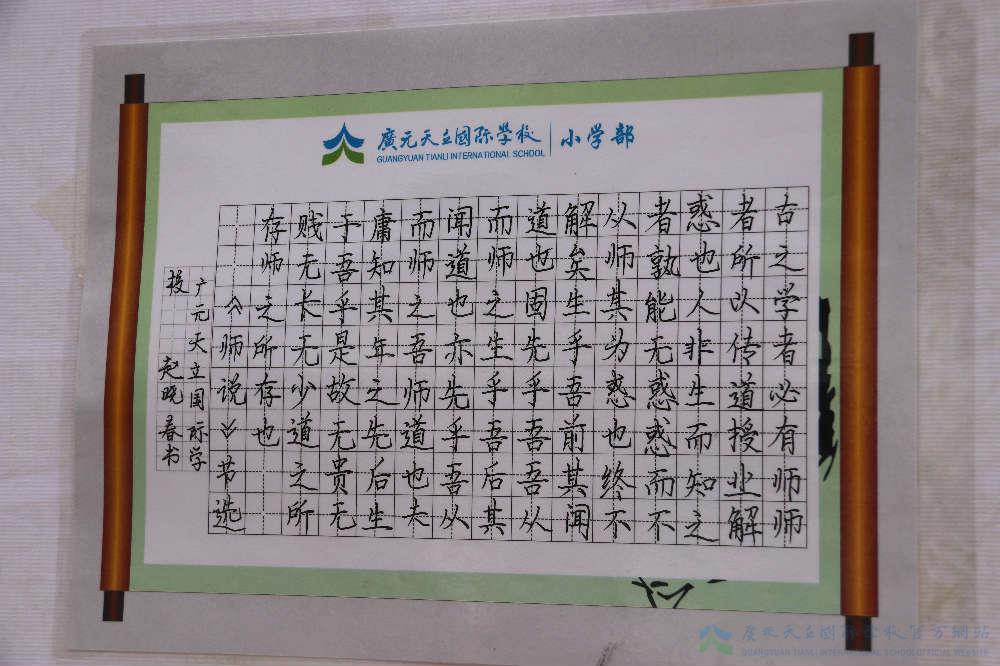 廣元天立國际學校 小学部
GUANGYUAN TIANLI INTERNATIONAL SCHOOL
古之学者必有师师
者所以传道授业解
惑也人非生而知之
者孰能无惑惑而不
从师其为惑也终不
解矣生乎吾前其闻
道也固先乎吾吾从
而师之生乎吾后其
闻道也亦先乎吾从
而师之吾师道也夫
庸知其年之先后生
于吾乎是故无贵无
贱无长无少道之所
存师之所存也
《师说》节选
广元天立国际学
校 赵晓春书
廣元天立國际学校官方網站
GUANGYUAN TIANLI INTERNATIONAL SCHOOL OFFICIAL WEBSITE